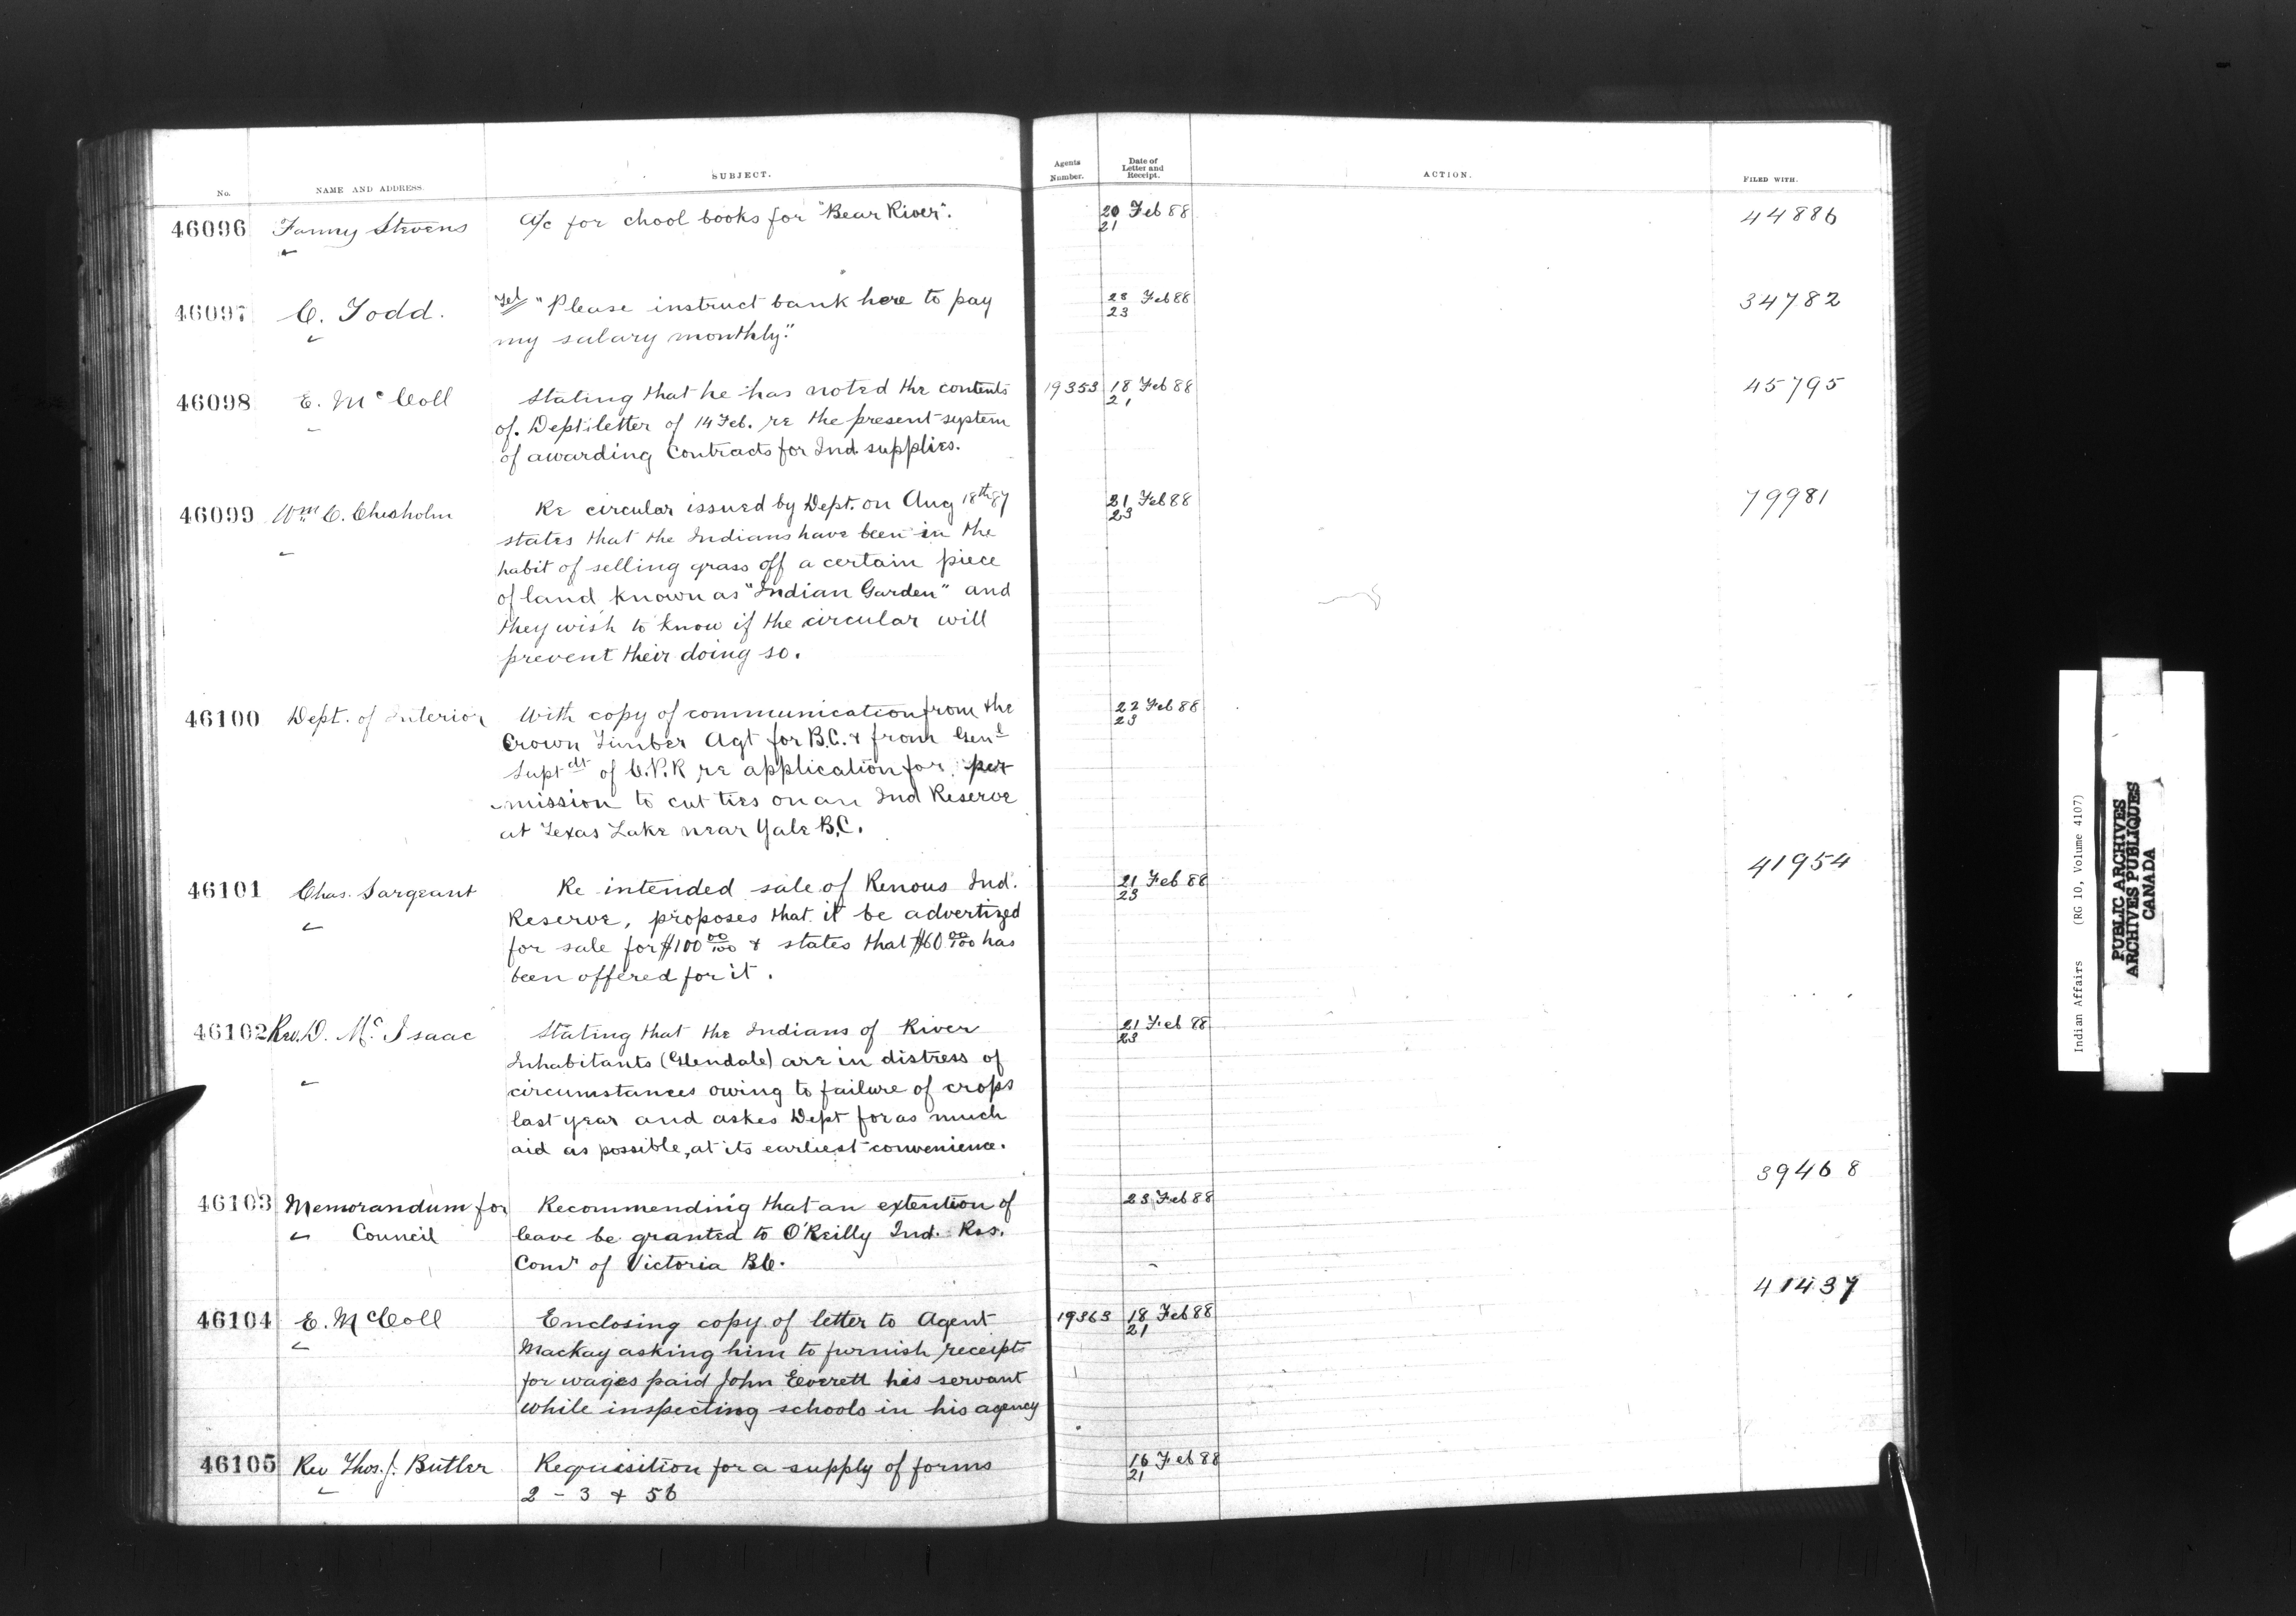 No. NAME AND ADDRESS. SUBJECT. Agents Number. Date of Letter and Receipt. ACTION. FILED WITH.
46096 Fanny Stevens A/c for chool books for "Bear River". 20 Feb 88 44886
21
46097 C. Todd. Tel "Please instruct bank here to pay 28 Feb 88 34782
my salary monthly." 23
46098 E. McColl Stating that he has noted the contents 19353 18 Feb 88 45795
of. Dept letter of 14 Feb. re the present system 21
of awarding Contracts for Ind. supplies.
46099 Wm C. Chisholm Re circular issued by Dept. on Aug 18th 87 21 Feb 88 79981
states that the Indians have been in the 23
habit of selling grass off a certain piece
of land known as "Indian Garden" and
they wish to know if the circular will
prevent their doing so.
46100 Dept. of Interior With copy of communication from the 22 Feb 88
Crown Timber Agt for B.C. & from Genl 23
Suptdt of C.P.R re application for per
mission to cut ties on an Ind Reserve
at Texas Lake near Yale B.C.
46101 Chas. Sargeant Re intended sale of Renous Ind. 21 Feb 88 41954
Reserve, proposes that it be advertized 23
for sale for $100 00/100 & states that $60. 00/100 has
been offered for it.
46102 Rev. D. McIsaac Stating that the Indians of River 21 Feb 88
Inhabitants (Glendale) are in distress of 23
circumstances owing to failure of crops
last year and askes Dept for as much
aid as possible, at its earliest convenience.
46103 Memorandum for Recommending that an extention of 23 Feb 88 39468
Council leave be granted to O'Reilly Ind. Res.
Comr of Victoria BC.
46104 E. McColl Enclosing copy of letter to Agent 19363 18 Feb 88 41437
Mackay asking him to furnish receipts 21
for wages paid John Everett his servant
while inspecting schools in his agency
46105 Rev Thos. J. Butler Requisition for a supply of forms 16 Feb 88
2 - 3 & 56 21
Indian Affairs (RG 10, Volume 4107)
PUBLIC ARCHIVES
ARCHIVES PUBLIQUES
CANADA